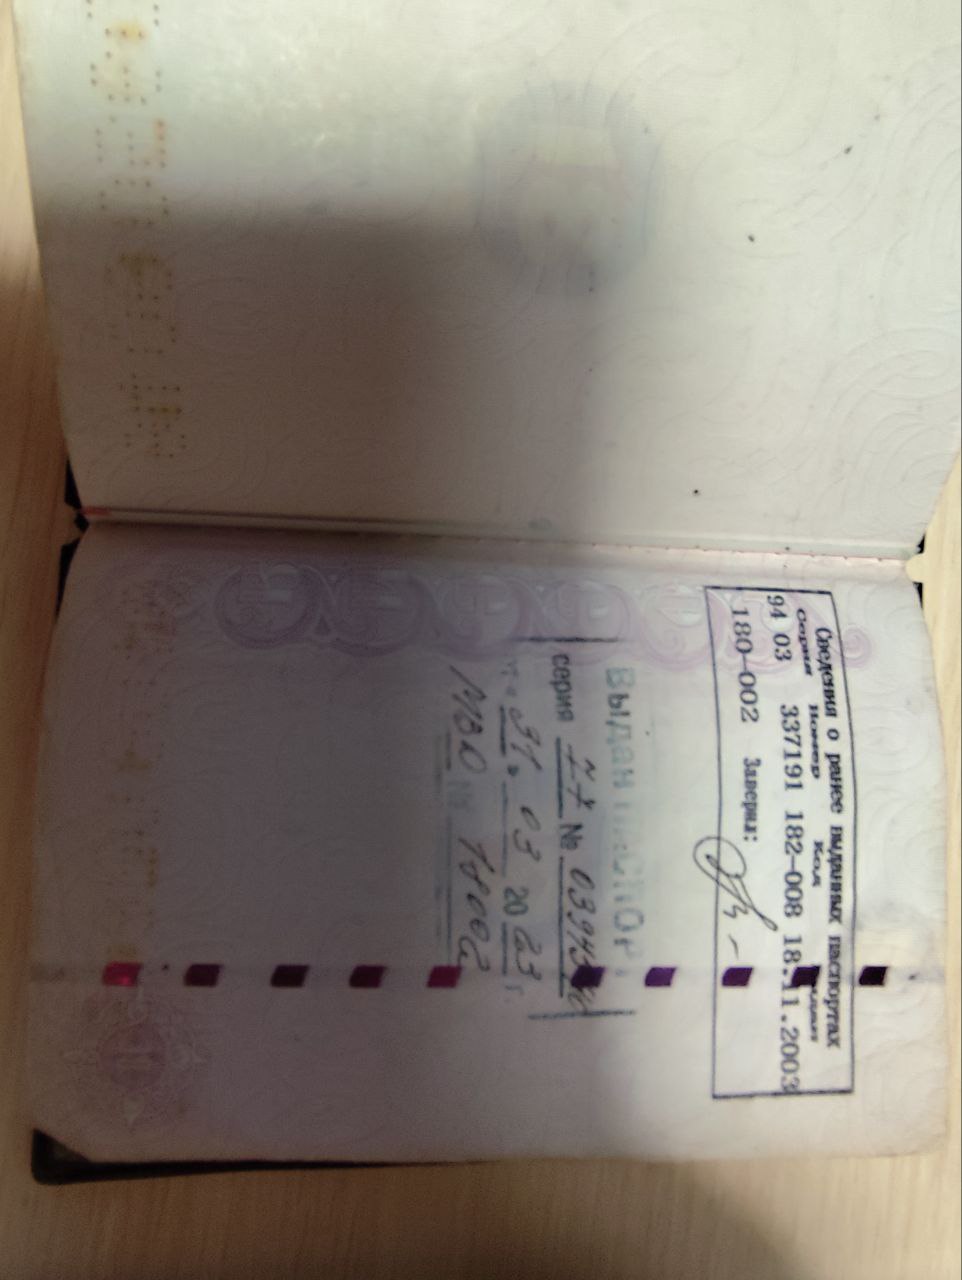 Сведения о ранее выданных паспортах
Серия Номер Код
94 03 337191 182-008 18.11.2003
180-002 Заверил:
Выдан
серия 77 №
03 20 23 г.
МВД № 18002